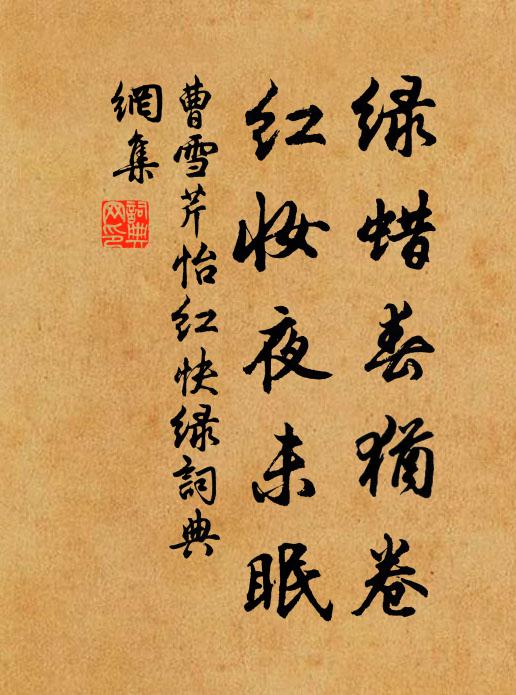 绿蜡春犹卷
红妆夜未眠
曹雪芹怡红快绿詞典
網集
詞典
网印